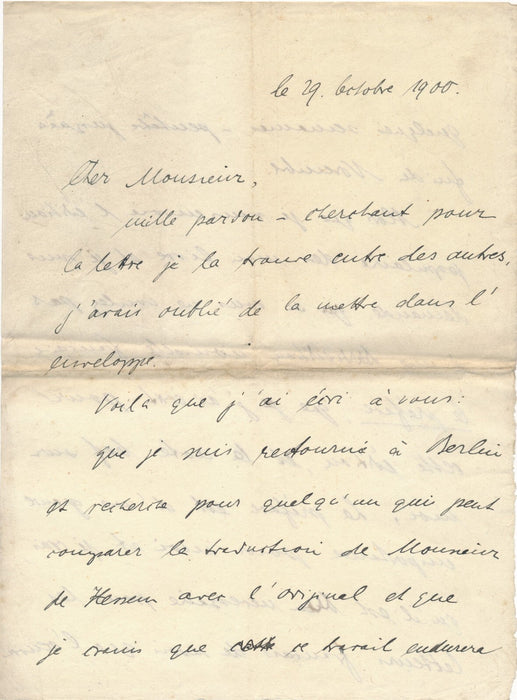 le 29. Octobre 1900.
Cher Monsieur,
mille pardon – cherchant pour
la lettre je la trouve entre des autres,
j'avais oublié de la mettre dans l'
enveloppe.
Voilà que j'ai écri à vous:
que je suis retourné à Berlin
et recherise pour quelqu'un qui peut
comparer la traduction de Monsieur
de Hessem avec l'original et que
je crains que ce travail endurera